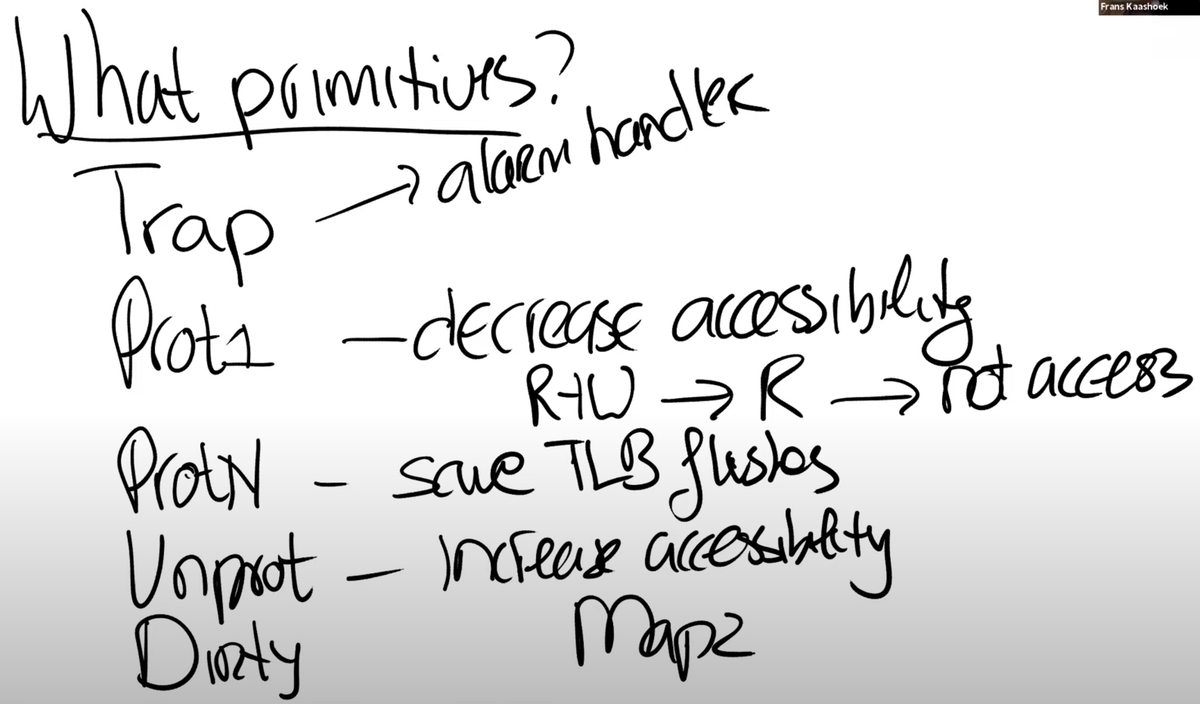 Frans Kaashoek
What primitives?
Trap → alarm handler
Prot1 — decrease accessibility
R+W → R → not access
ProtN – save TLB flushes
Unprot — increase accessibility
Dirty Map2